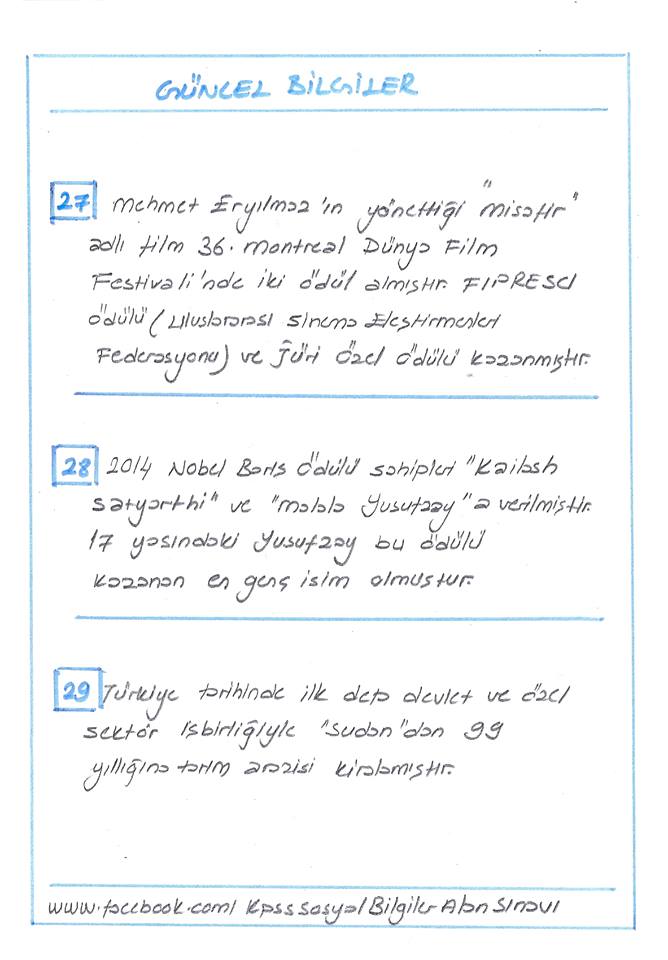 GÜNCEL BİLGİLER
27 Mehmet Eryılmaz'ın yönettiği "Misafir"
adlı film 36. Montreal Dünya Film
Festivali'nde iki ödül almıştır. FIPRESCI
ödülü (Uluslararası Sinema Eleştirmenleri
Federasyonu) ve Jüri Özel Ödülü kazanmıştır.
28 2014 Nobel Barış Ödülü sahipleri "Kailash
Satyarthi" ve "Malala Yusufzay"a verilmiştir.
17 yaşındaki Yusufzay bu ödülü
kazanan en genç isim olmuştur.
29 Türkiye tarihinde ilk defa devlet ve özel
sektör işbirliğiyle "Sudan"dan 99
yıllığına tarım arazisi kiralamıştır.
www.facebook.com/KpssSosyalBilgilerAlanSınavı